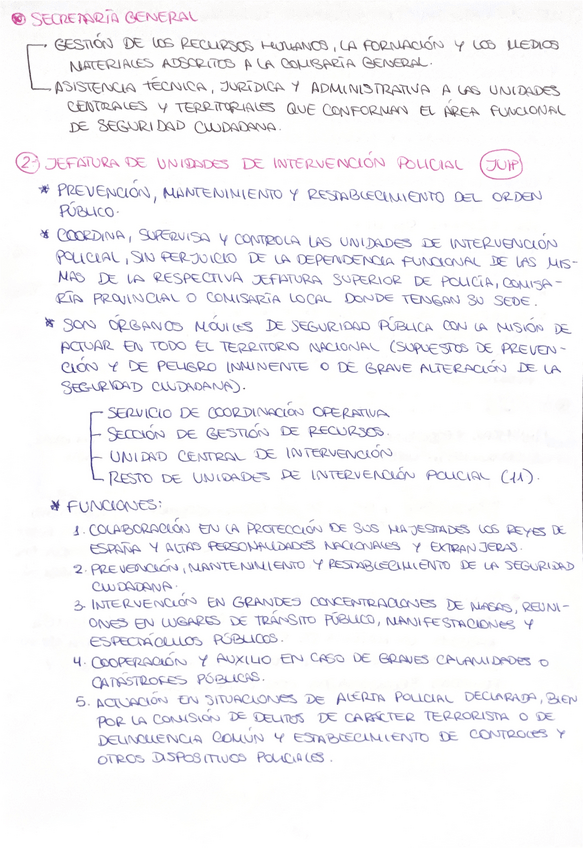 SECRETARÍA GENERAL
GESTIÓN DE LOS RECURSOS HUMANOS, LA FORMACIÓN Y LOS MEDIOS
MATERIALES ADSCRITOS A LA COMISARÍA GENERAL.
ASISTENCIA TÉCNICA, JURÍDICA Y ADMINISTRATIVA A LAS UNIDADES
CENTRALES Y TERRITORIALES QUE CONFORMAN EL ÁREA FUNCIONAL
DE SEGURIDAD CIUDADANA.
2 JEFATURA DE UNIDADES DE INTERVENCIÓN POLICIAL (JUIP)
* PREVENCIÓN, MANTENIMIENTO Y RESTABLECIMIENTO DEL ORDEN
PÚBLICO.
* COORDINA, SUPERVISA Y CONTROLA LAS UNIDADES DE INTERVENCIÓN
POLICIAL, SIN PERJUICIO DE LA DEPENDENCIA FUNCIONAL DE LAS MIS-
MAS DE LA RESPECTIVA JEFATURA SUPERIOR DE POLICÍA, COMISA-
RÍA PROVINCIAL O COMISARÍA LOCAL DONDE TENGAN SU SEDE.
* SON ÓRGANOS MÓVILES DE SEGURIDAD PÚBLICA CON LA MISIÓN DE
ACTUAR EN TODO EL TERRITORIO NACIONAL (SUPUESTOS DE PREVEN-
CIÓN Y DE PELIGRO INMINENTE O DE GRAVE ALTERACIÓN DE LA
SEGURIDAD CIUDADANA).
SERVICIO DE COORDINACIÓN OPERATIVA
SECCIÓN DE GESTIÓN DE RECURSOS.
UNIDAD CENTRAL DE INTERVENCIÓN
RESTO DE UNIDADES DE INTERVENCIÓN POLICIAL (11).
* FUNCIONES:
1. COLABORACIÓN EN LA PROTECCIÓN DE SUS MAJESTADES LOS REYES DE
ESPAÑA Y ALTAS PERSONALIDADES NACIONALES Y EXTRANJERAS.
2. PREVENCIÓN, MANTENIMIENTO Y RESTABLECIMIENTO DE LA SEGURIDAD
CIUDADANA.
3. INTERVENCIÓN EN GRANDES CONCENTRACIONES DE MASAS, REUNI-
ONES EN LUGARES DE TRÁNSITO PÚBLICO, MANIFESTACIONES Y
ESPECTÁCULOS PÚBLICOS.
4. COOPERACIÓN Y AUXILIO EN CASO DE GRAVES CALAMIDADES O
CATÁSTROFES PÚBLICAS.
5. ACTUACIÓN EN SITUACIONES DE ALERTA POLICIAL DECLARADA, BIEN
POR LA COMISIÓN DE DELITOS DE CARÁCTER TERRORISTA O DE
DELINCUENCIA COMÚN Y ESTABLECIMIENTO DE CONTROLES Y
OTROS DISPOSITIVOS POLICIALES.